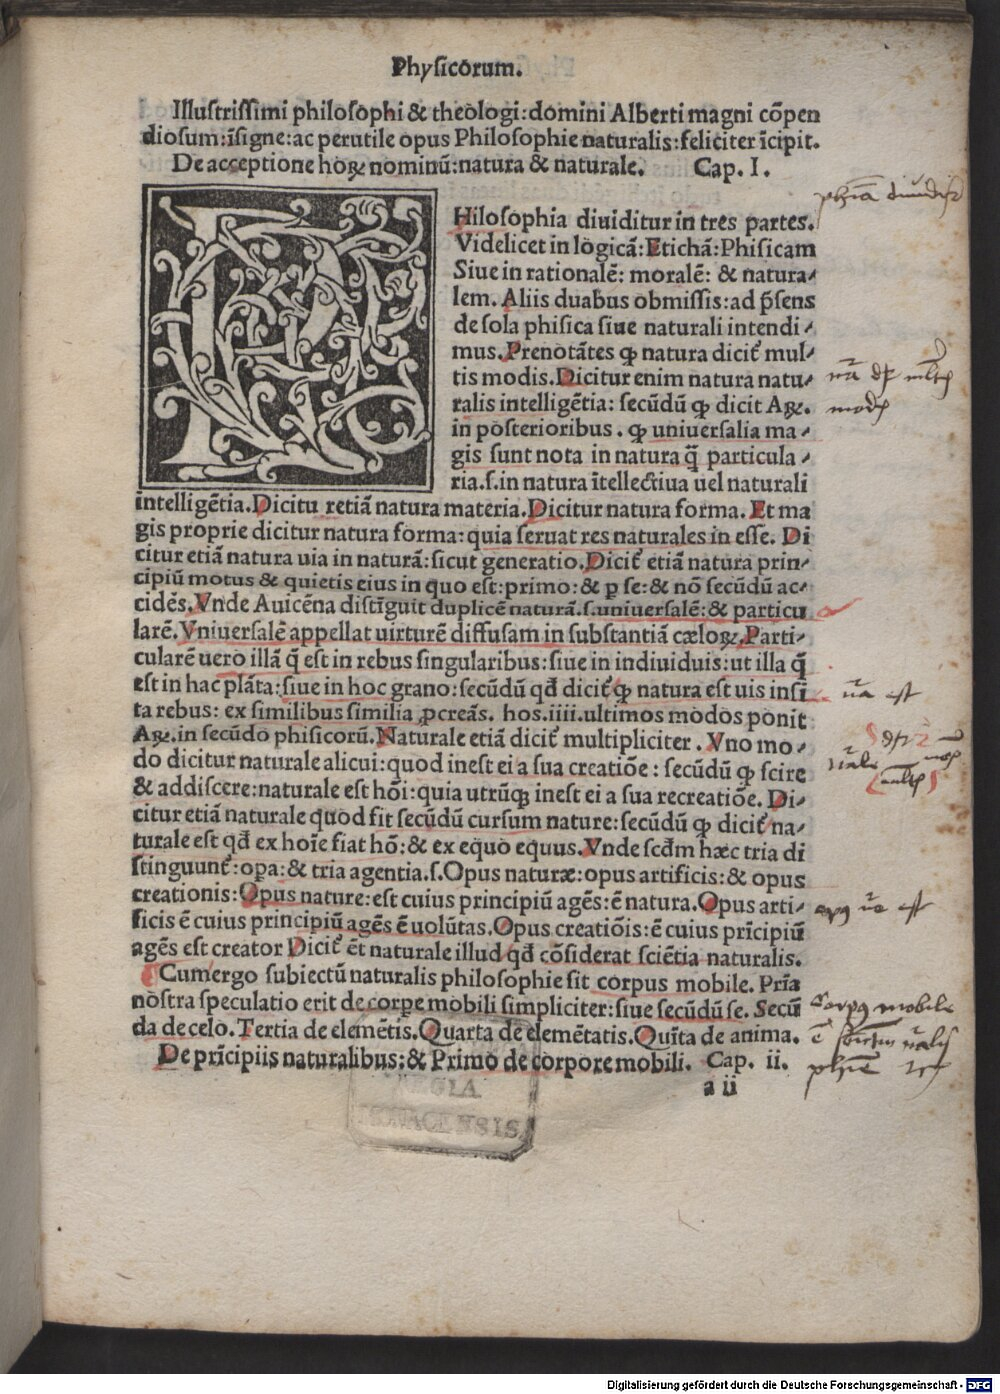 Phyſicorum.
Illuſtriſſimi philoſophi & theologi:domini Alberti magni cõpen
dioſum:ĩſigne:ac perutile opus Philoſophie naturalis:feliciter ĩcipit.
De acceptione hoꝝ nominũ:natura & naturale. Cap. I.
Hiloſophia diuiditur in tres partes.
Videlicet in logicã: Etichã: Phiſicam
Siue in rationalẽ: moralẽ: & natura⸗
lem. Aliis duabus obmiſſis:ad p̃ſens
de ſola phiſica ſiue naturali intendi⸗
mus. Prenotãtes ꝙ natura dicit̃ mul⸗
tis modis. Dicitur enim natura natu⸗
ralis intelligẽtia: ſecũdũ ꝙ dicit Aꝝ.
in poſterioribus . ꝙ uniuerſalia ma⸗
gis ſunt nota in natura q̃ particula⸗
ria.ſ.in natura ĩtellectiua uel naturali
intelligẽtia. Dicitu retiã natura materia. Dicitur natura forma. Et ma
gis proprie dicitur natura forma: quia ſeruat res naturales in eſſe. Di
citur etiã natura uia in naturã: ſicut generatio. Dicit̃ etiã natura prin⸗
cipiũ motus & quietis eius in quo eſt: primo: & ꝑ ſe: & nõ ſecũdũ ac⸗
cidẽs. Vnde Auicẽna diſtĩguit duplicẽ naturã.ſ.uniuerſalẽ: & particu
larẽ. Vniuerſalẽ appellat uirturẽ diffuſam in ſubſtantiã cæloꝝ. Parti⸗
cularẽ uero illã q̃ eſt in rebus ſingularibus: ſiue in indiuiduis: ut illa q̃
eſt in hac plãta: ſiue in hoc grano: ſecũdũ qđ dicit̃ ꝙ natura eſt uis inſi
ta rebus: ex ſimilibus ſimilia ꝓcreãs. hos.iiii.ultimos modos ponit
Aꝝ. in ſecũdo phiſicorũ. Naturale etiã dicit̃ multipliciter . Vno mo⸗
do dicitur naturale alicui: quod ineſt ei a ſua creatiõe : ſecũdũ ꝙ ſcire
& addiſcere: naturale eſt hõi: quia utrũqꝫ ineſt ei a ſua recreatiõe. Di⸗
citur etiã naturale quod fit ſecũdũ curſum nature: ſecũdũ ꝙ dicit̃ na⸗
turale eſt qđ ex hoĩe fiat hõ: & ex equo equus. Vnde ſcđm hæc tria di
ſtinguunt̃: oꝑa: & tria agentia.ſ. Opus naturæ: opus artificis: & opus
creationis: Opus nature: eſt cuius principiũ agẽs: ẽ natura. Opus arti⸗
ficis ẽ cuius principiũ agẽs ẽ uolũtas. Opus creatiõis: ẽ cuius prĩcipiũ
agẽs eſt creator Dicit̃ ẽt naturale illud qđ cõſiderat ſciẽtia naturalis.
Cum ergo ſubiectũ naturalis philoſophie ſit corpus mobile. Prĩa
nõſtra ſpeculatio erit de corpe mobili ſimpliciter: ſiue ſecũdũ ſe. Secũ
da de celo. Tertia de elemẽtis. Quarta de elemẽtatis. Quĩta de anima.
De prĩcipiis naturalibus: & Primo de corpore mobili. Cap. ii.
a ii
phĩa diuidit̃
opꝰ nẽ eſt
Corpꝰ mobile
REGIA
MONACENSIS
Digitalisierung gefördert durch die Deutsche Forschungsgemeinschaft - DFG